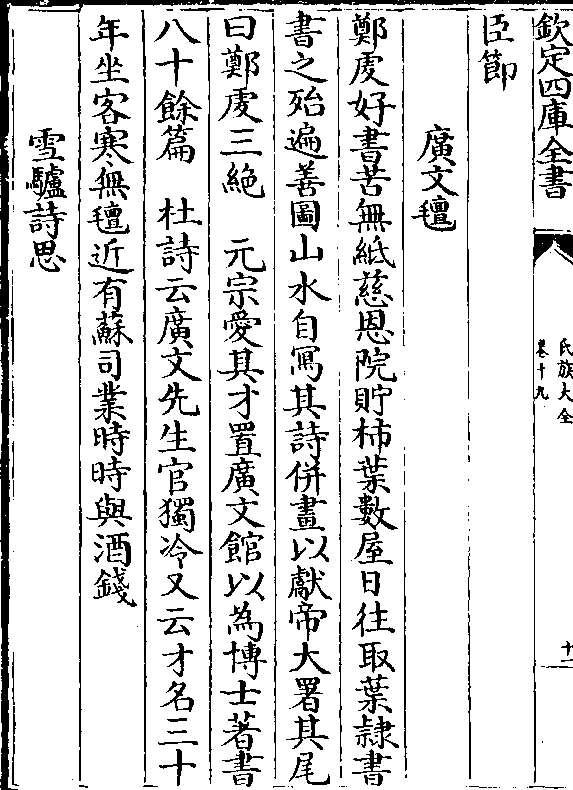 欽定四庫全書
氏族大全
卷十九
十二
臣節
廣文氊
鄭虔好書苦無紙慈恩院貯柿葉數屋日往取葉隷書
書之殆遍善圖山水自寫其詩併畫以獻帝大署其尾
曰鄭虔三絶　元宗愛其才置廣文館以為博士著書
八十餘篇　杜詩云廣文先生官獨冷又云才名三十
年坐客寒無氊近有蘇司業時時與酒錢
雪驢詩思